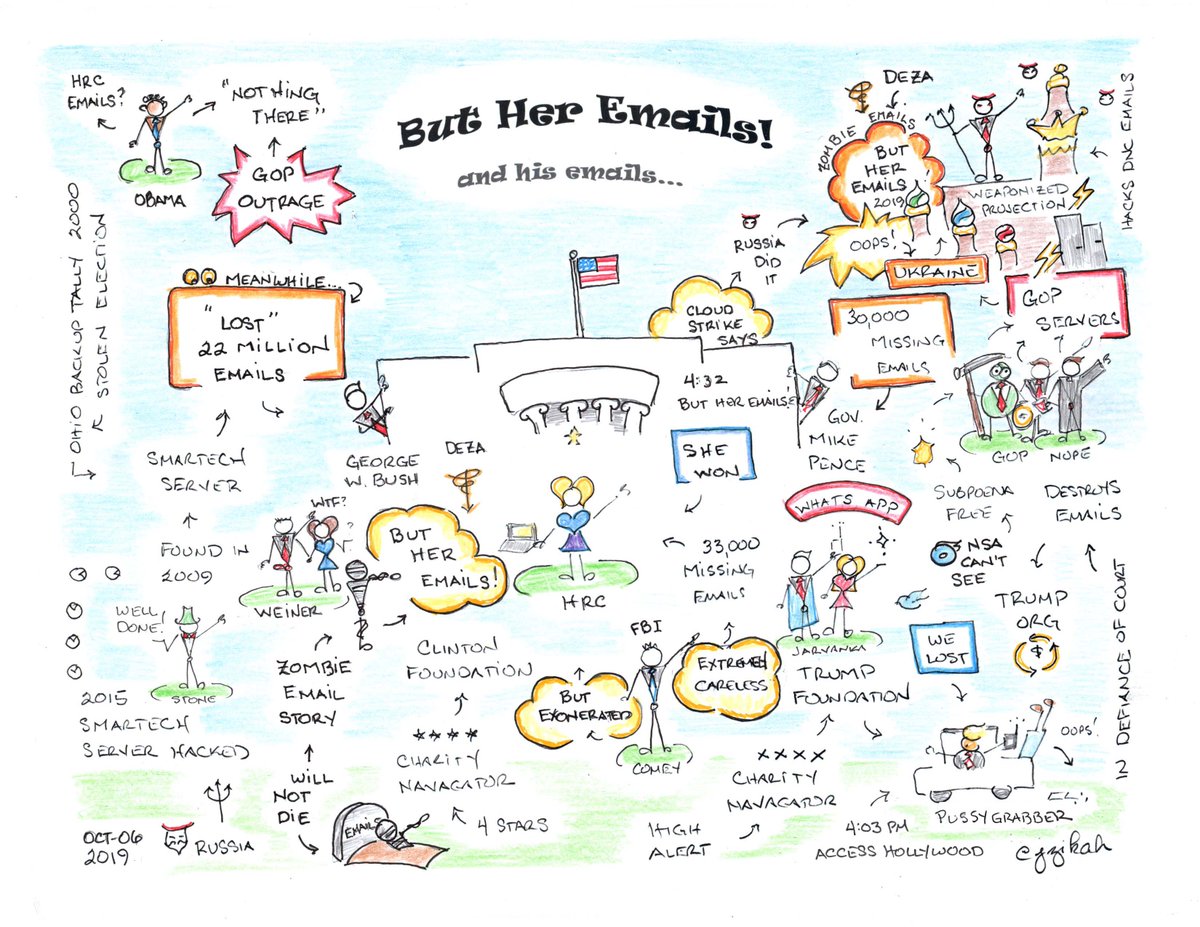 But Her Emails!
and his emails...
HRC
EMAILS?
"NOTHING
THERE"
OBAMA
GOP
OUTRAGE
OHIO BACKUP TALLY 2000
STOLEN ELECTION
MEANWHILE...
"LOST"
22 MILLION
EMAILS
SMARTECH
SERVER
FOUND IN
2009
GEORGE
W. BUSH
WTF?
?
WEINER
WELL
DONE!
STONE
2015
SMARTECH
SERVER HACKED
OCT-06
2019
RUSSIA
ZOMBIE
EMAIL
STORY
WILL
NOT
DIE
EMAILS
DEZA
BUT
HER
EMAILS!
HRC
CLINTON
FOUNDATION
CHARITY
NAVAGATOR
4 STARS
BUT
EXONERATED
FBI
COMEY
EXTREMELY
CARELESS
HIGH
ALERT
XXXX
CHARITY
NAVAGATOR
TRUMP
FOUNDATION
JARVANKA
WHATS APP
33,000
MISSING
EMAILS
SHE
WON
4:32
BUT HER EMAILS!
CLOUD
STRIKE
SAYS
RUSSIA
DID
IT
GOV.
MIKE
PENCE
30,000
MISSING
EMAILS
DEZA
ZOMBIE EMAILS
BUT
HER
EMAILS
2019
OOPS!
UKRAINE
WEAPONIZED
PROJECTION
HACKS DNC EMAILS
GOP
SERVERS
GOP
NOPE
SUBPOENA
FREE
DESTROYS
EMAILS
NSA
CAN'T
SEE
TRUMP
ORG
$
WE
LOST
IN DEFIANCE OF COURT
OOPS!
PUSSYGRABBER
4:03 PM
ACCESS HOLLYWOOD